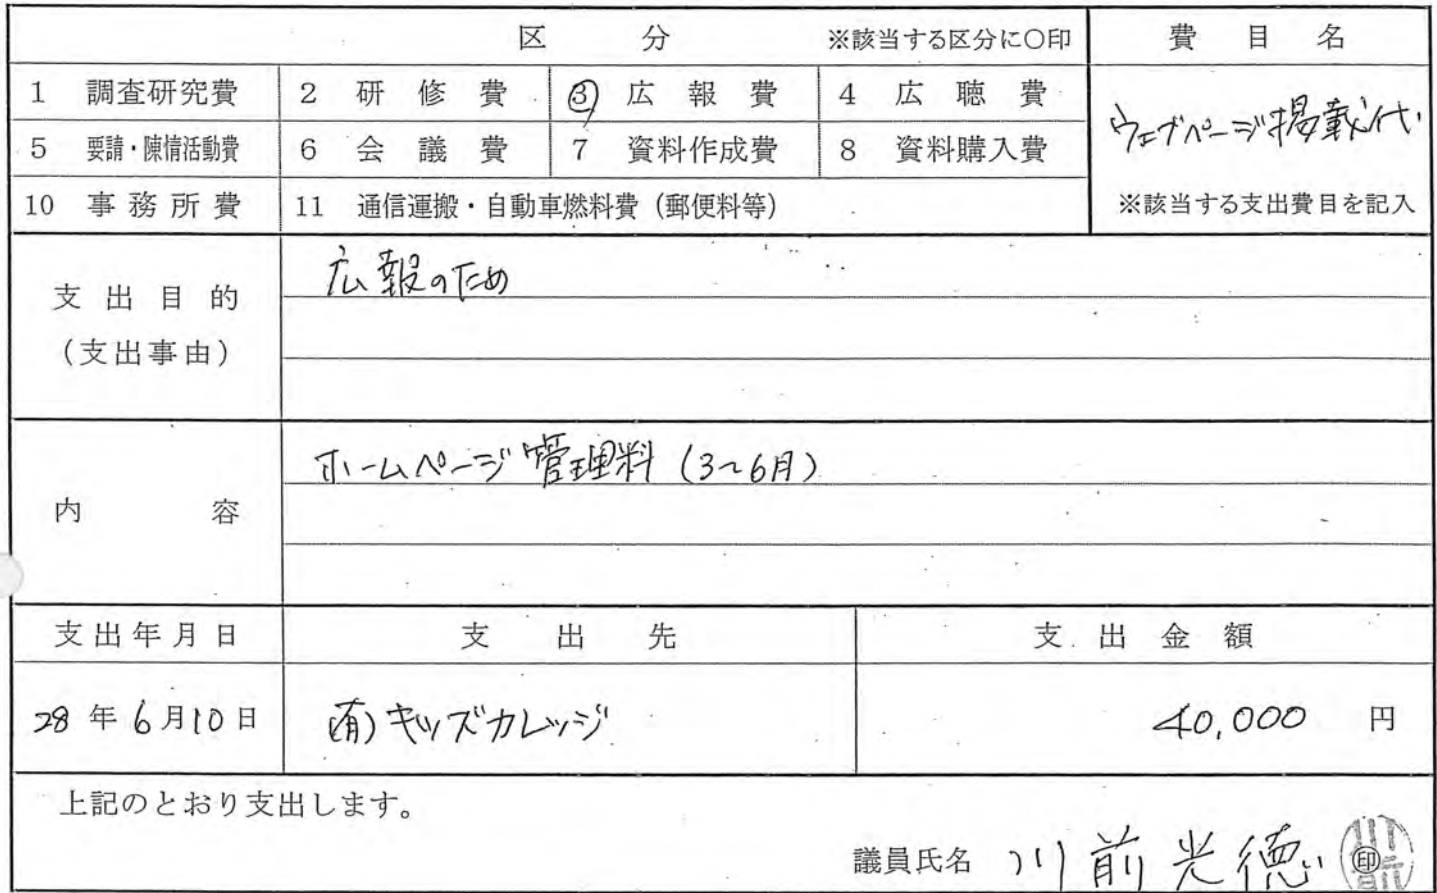 区 分 ※該当する区分に○印 費目名
1 調査研究費 2 研修費 ③ 広報費 4 広聴費
ウェブページ掲載代
5 要請・陳情活動費 6 会議費 7 資料作成費 8 資料購入費
10 事務所費 11 通信運搬・自動車燃料費（郵便料等） ※該当する支出費目を記入
広報のため
支出目的
（支出事由）
ホームページ管理料（3～6月）
内容
支出年月日 支出先 支出金額
28年6月10日 (有)キッズカレッジ 40,000 円
上記のとおり支出します。
議員氏名 川前光徳 ㊞